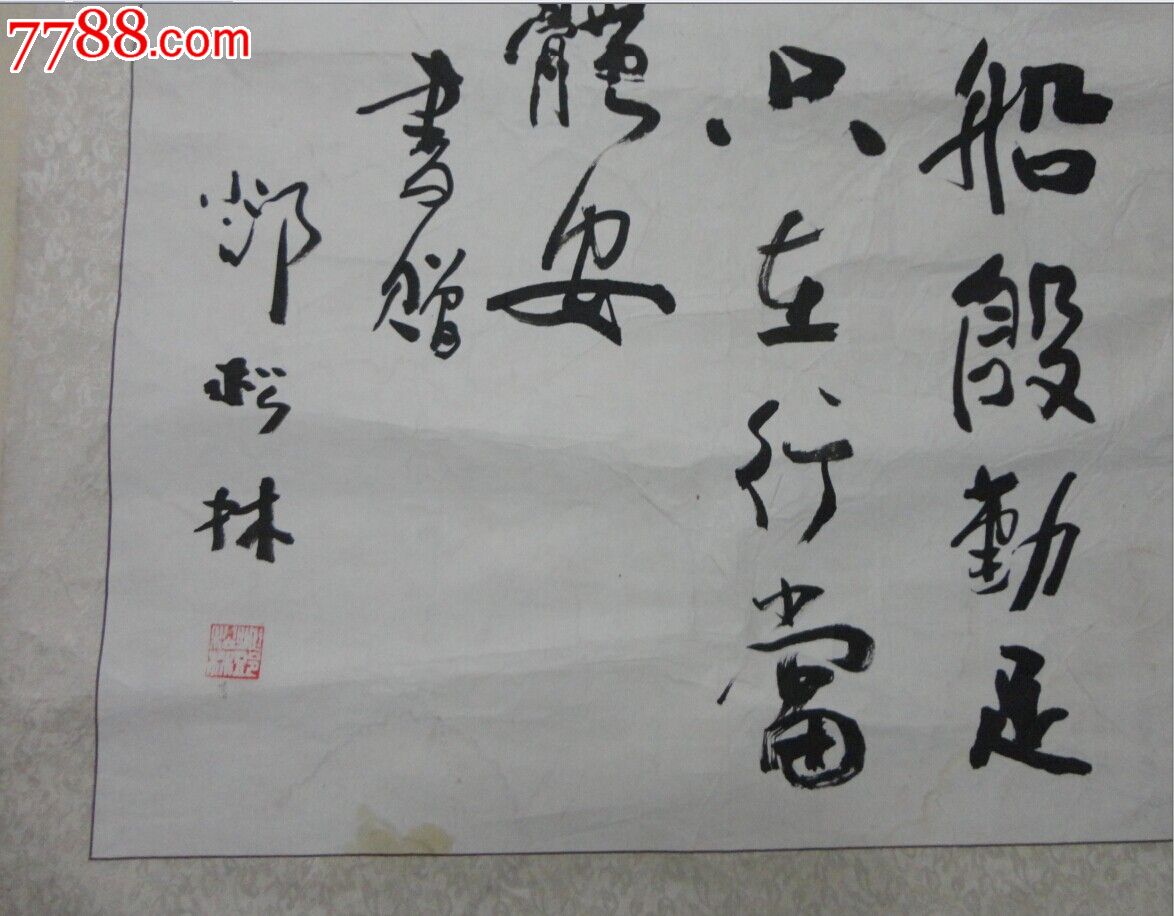 7788.com
船殷勤足
只在行當
體安
書贈
松林